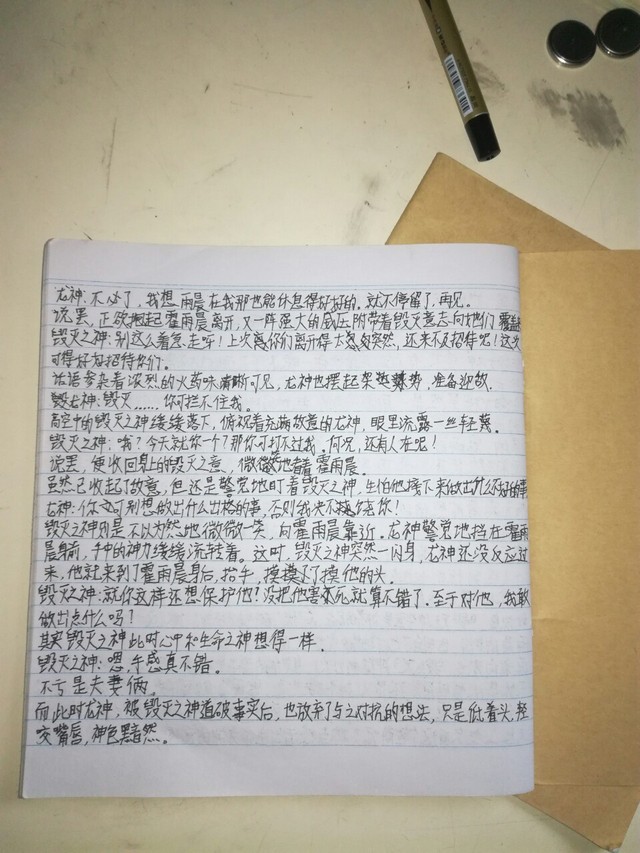 龙神：不必了，我想雨晨在我那也能休息得好好的。就不停留了，再见。
说罢，正欲抱起霍雨晨离开，又一阵强大的威压附带着毁灭意志向他们覆盖
毁灭之神：别这么着急走呀！上次你们离开得太突然，还来不及招待呢！这次
可得好好招待你们。
话语参杂着浓烈的火药味清晰可见，龙神也摆起架势，准备迎敌。
龙神：毁灭……你可拦不住我。
高空中的毁灭之神缓缓落下，俯视着充满敌意的龙神，眼里流露一丝轻蔑。
毁灭之神：哦？今天就你一个？那你可打不过我。何况，还有人在呢！
说罢，便收回身上的毁灭之意，微微地看着霍雨晨。
虽然已收起了敌意，但还是警觉地盯着毁灭之神，生怕他接下来做出什么不好的事
龙神：你可别想做出什么出格的事，否则我决不轻饶你！
毁灭之神则是不以为然地微微一笑，向霍雨晨靠近。龙神警觉地挡在霍雨
晨身前，手中的神力缓缓流转着。这时，毁灭之神突然一闪身，龙神还没反应过
来，他就来到了霍雨晨身后，抬手，摸了摸他的头。
毁灭之神：就你这样还想保护他？没把他害死就算不错了。至于对他，我敢
做出点什么吗！
其实毁灭之神此时心中和生命之神想得一样。
毁灭之神：嗯，手感真不错。
不亏是夫妻俩。
而此时龙神，被毁灭之神道破事实后，也放弃了与之对抗的想法，只是低着头，轻
咬嘴唇，神色黯然。